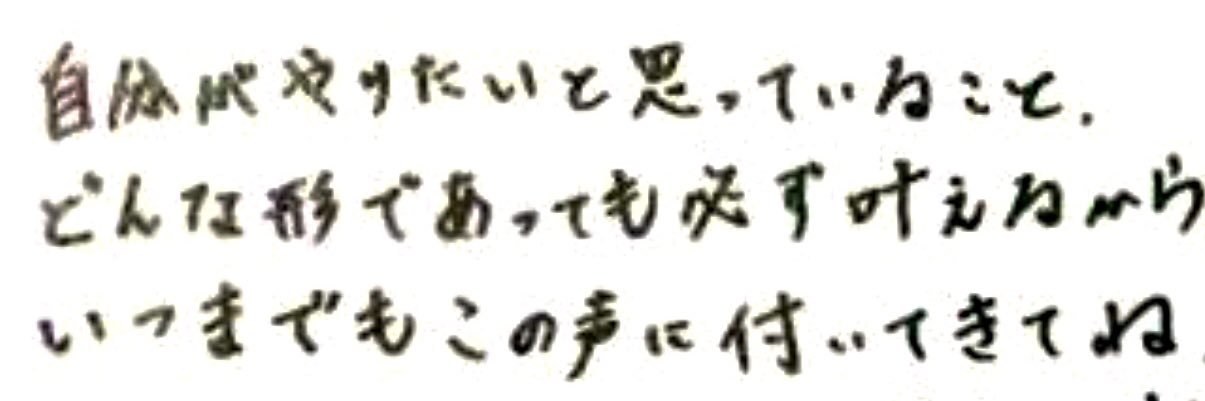 自分がやりたいと思っていること.
どんな形であっても必ず叶えるから
いつまでもこの声に付いてきてね